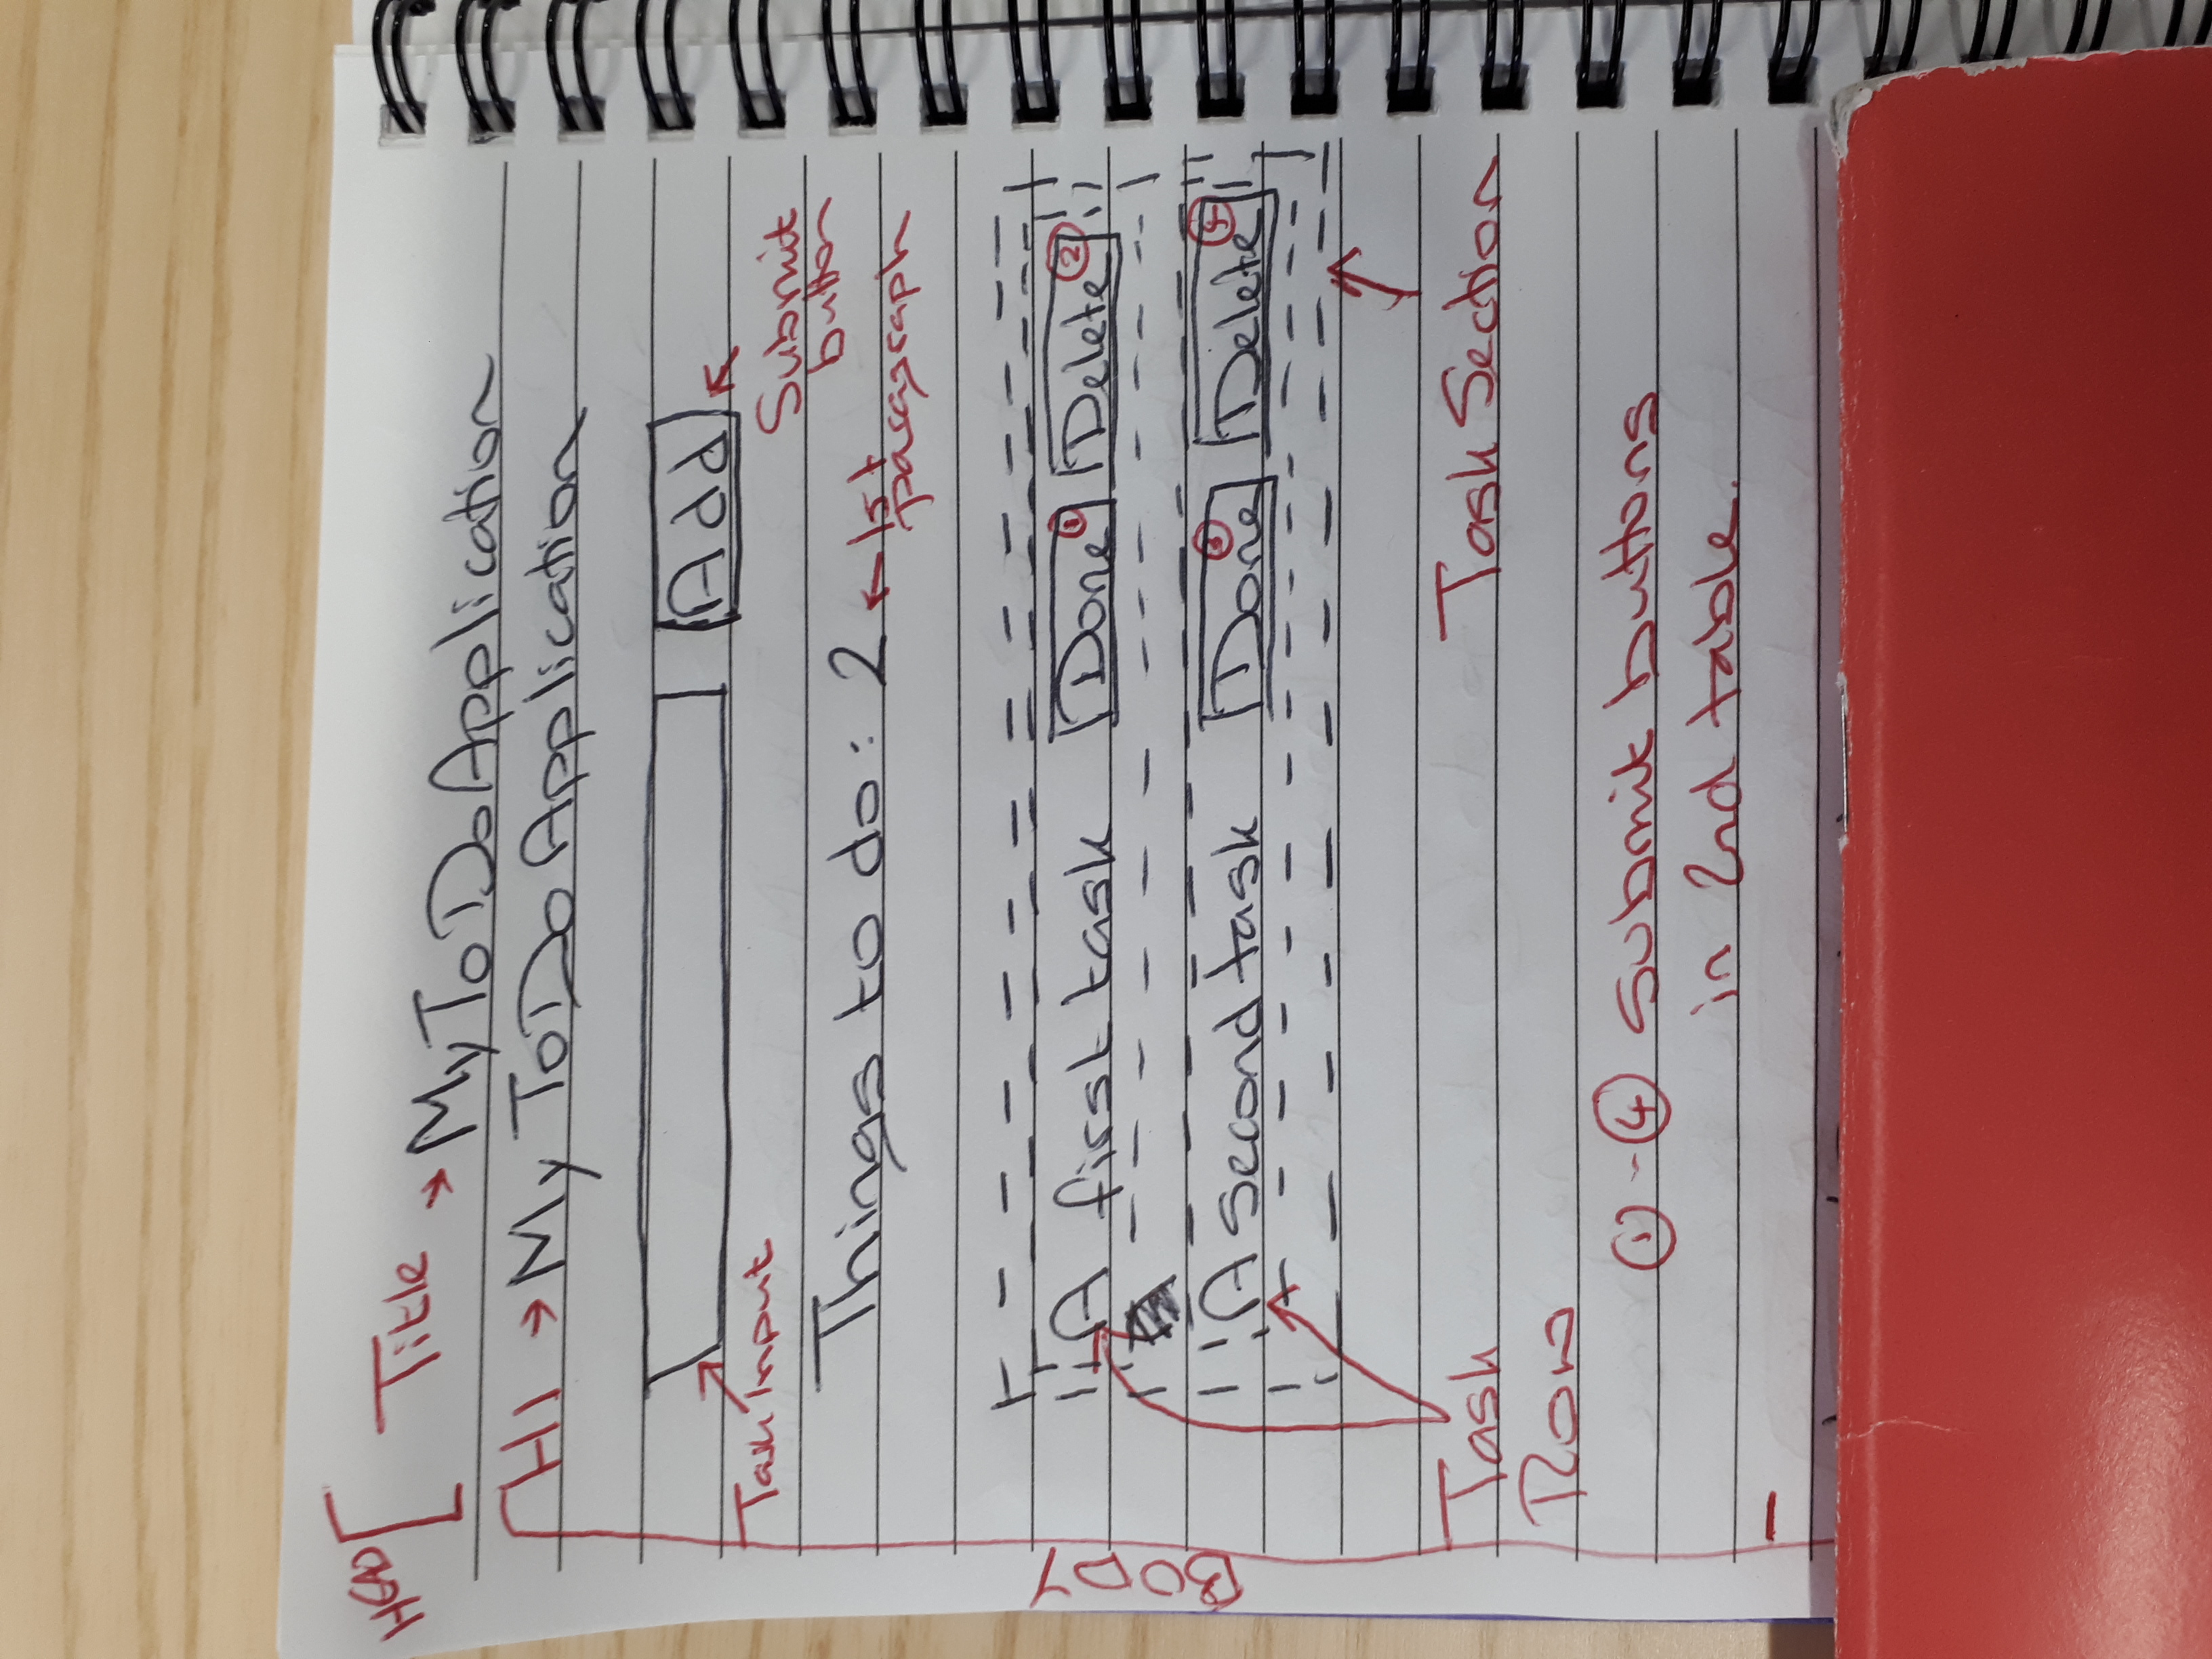 HEAD [ Title → MyToDoApplication
H1 → My ToDo Application
Add
Task Input
Submit
button
Things to do: 2 ← 1st
paragraph
BODY
A first task Done ① Delete ②
A second task Done ③ Delete ④
Task
Row
Task Section
① - ④ submit buttons
in 2nd table.